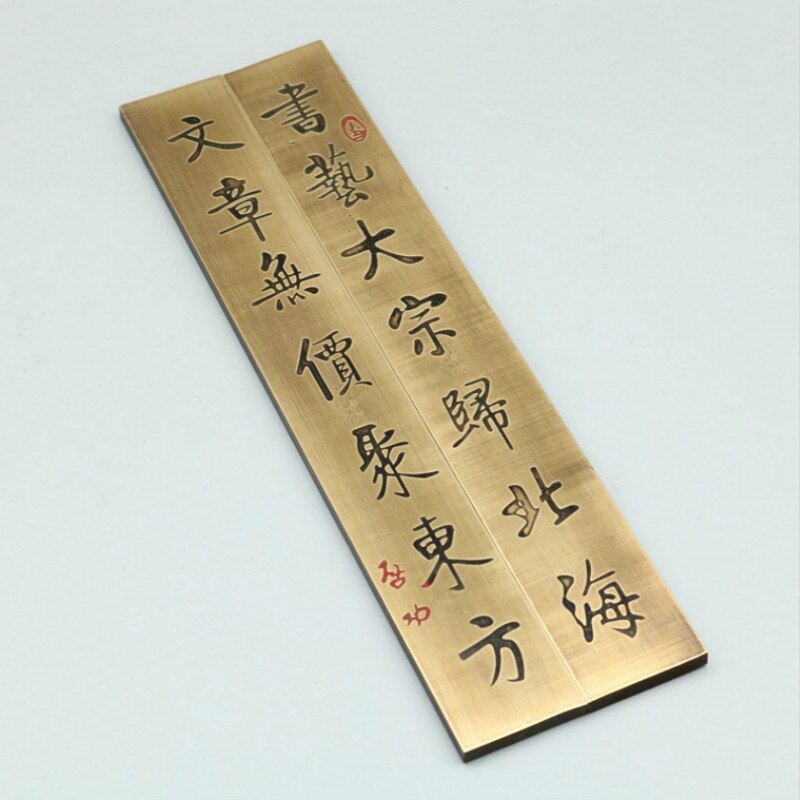 書藝大宗歸北海
文章無價聚東方
启功